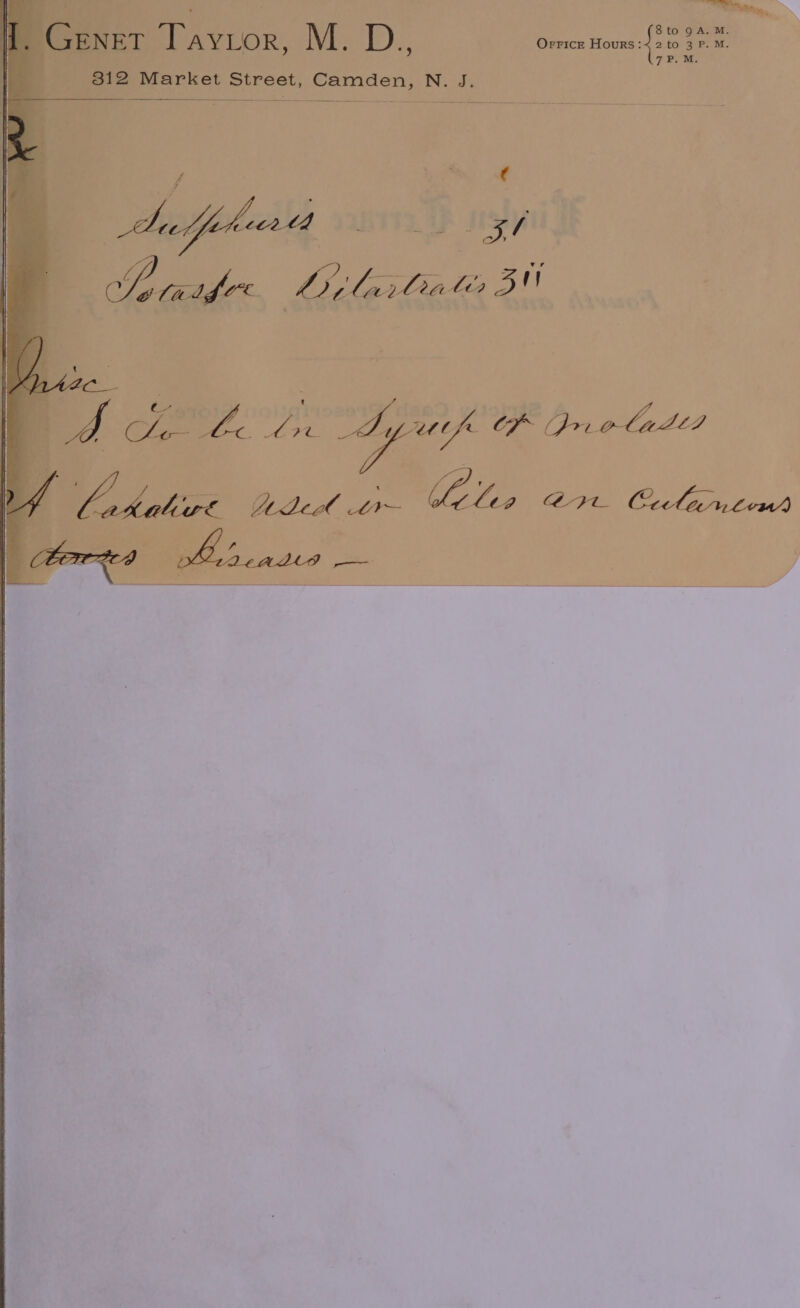 H. GENET TAYLOR, M. D.,
OFFICE HOURS: { 8 to 9 A. M.
2 to 3 P. M.
7 P. M.
312 Market Street, Camden, N. J.
℞
Sulphuris ʒi
Potassae Bitartratis ʒii
Misc
S To be in Syrup or Molasses
A Laxative Used in Piles an Cutaneous
Diseases —